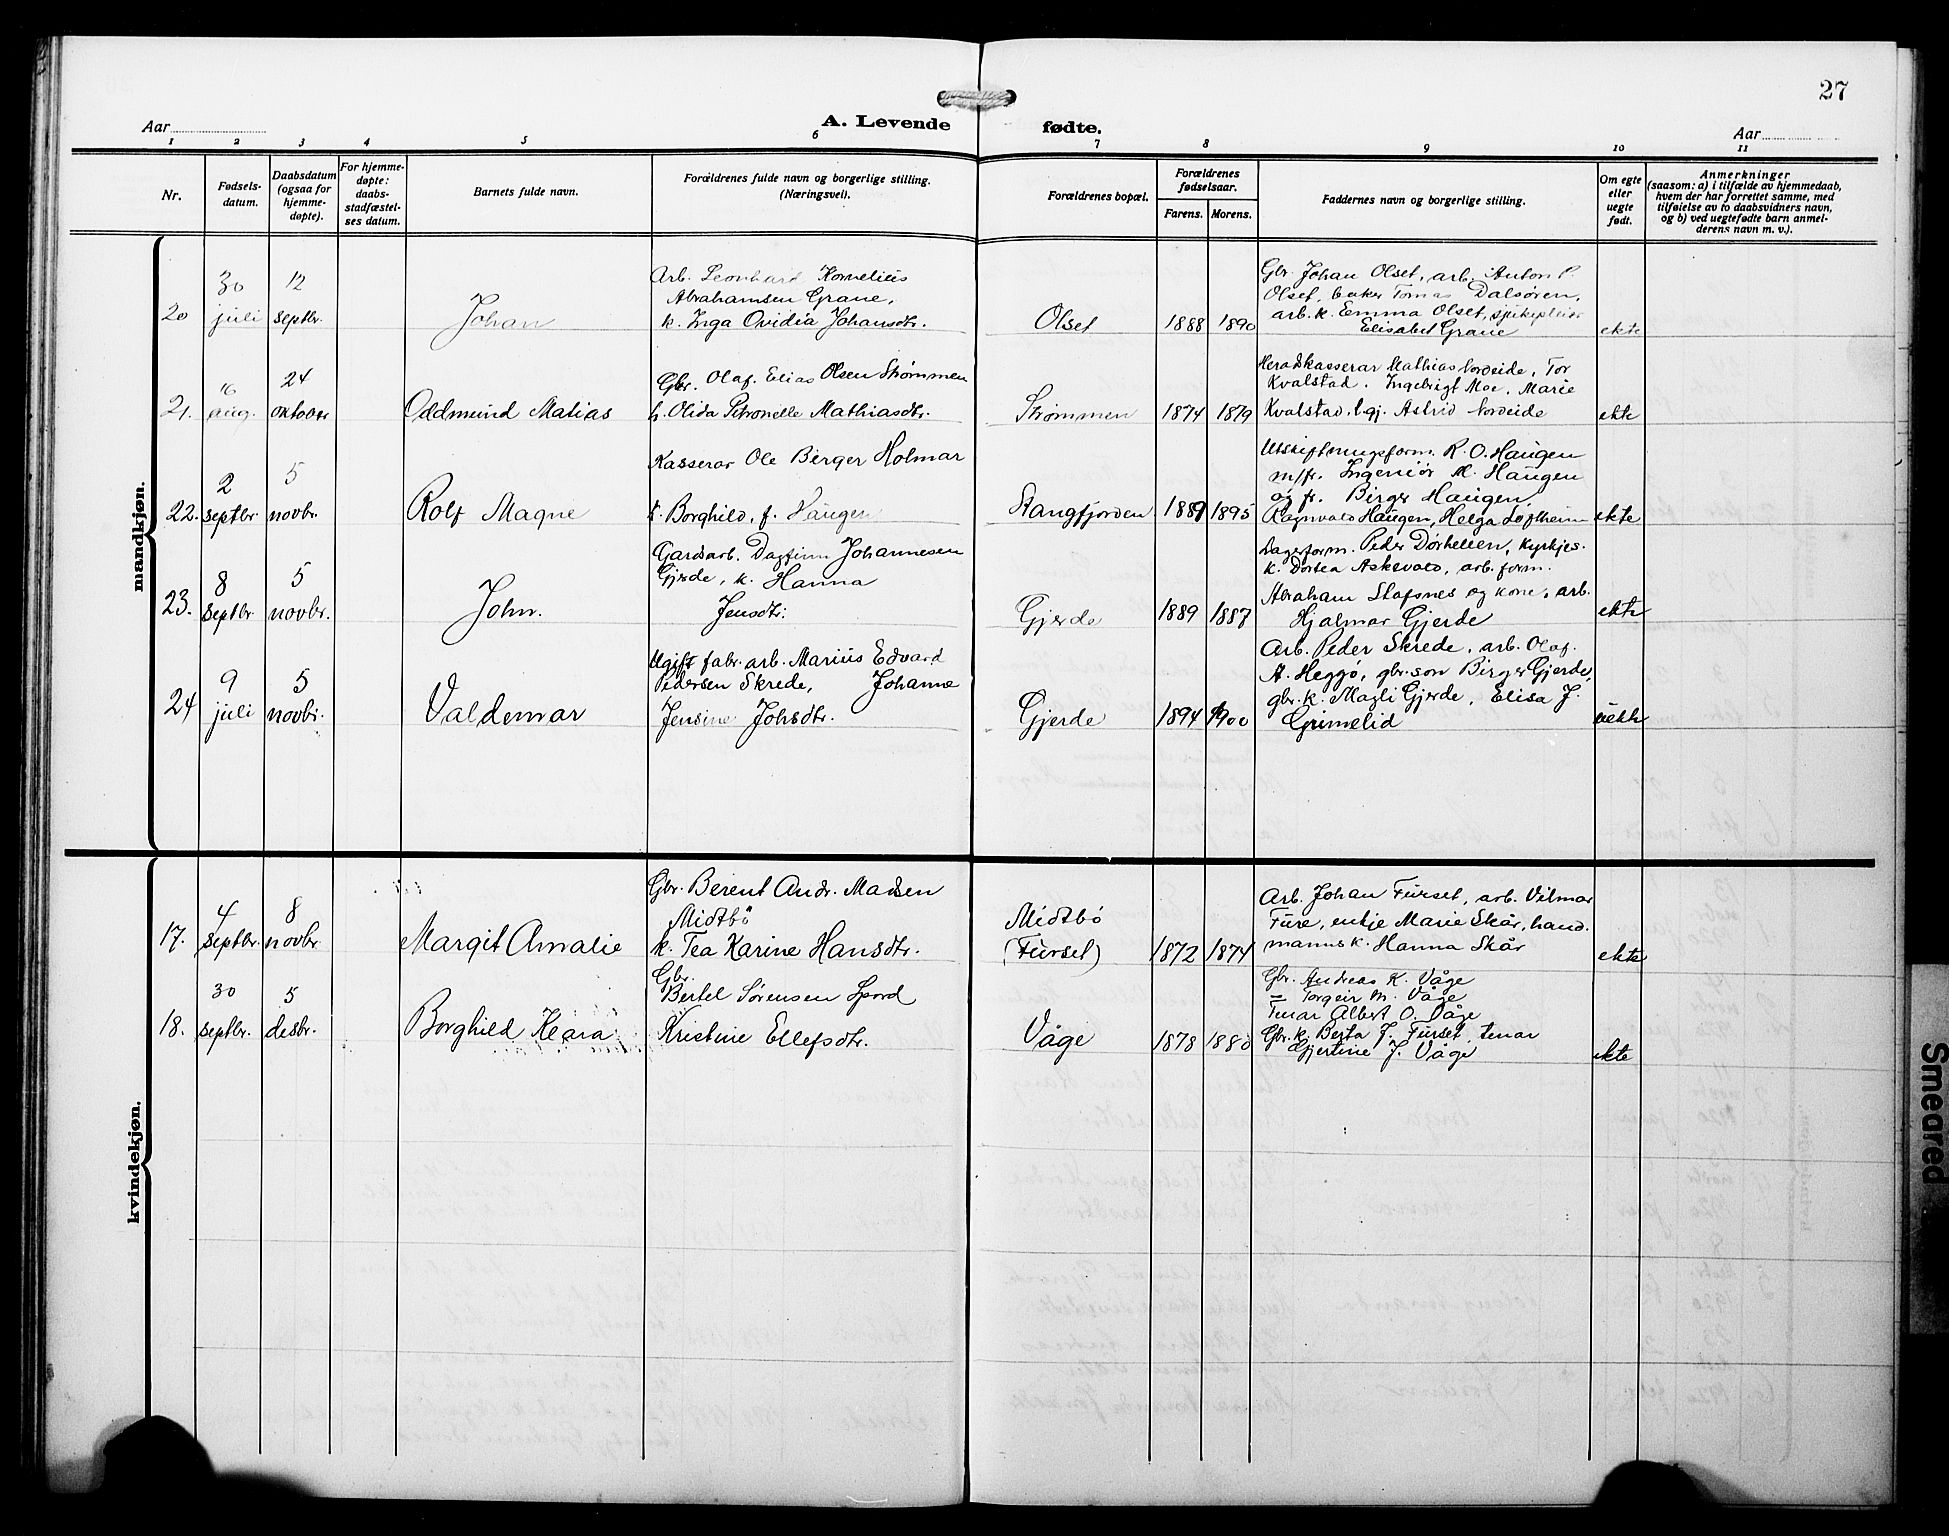 27
Aar
A. Levende fødte.
Aar
1 2 3 4 5 6 7 8 9 10 11
Nr.
Fødsels-
datum.
Daabsdatum
(ogsaa for
hjemme-
døpte).
For hjemme-
døpte:
daabs-
stadfæstel-
ses datum.
Barnets fulde navn.
Forældrenes fulde navn og borgerlige stilling.
(Næringsvei).
Forældrenes bopæl.
Forældrenes
fødselsaar.
Farens. Morens.
Faddernes navn og borgerlige stilling.
Om egte
eller
uegte
født.
Anmerkninger
(saasom: a) i tilfælde av hjemmedaab,
hvem der har forrettet samme, med
tilføielse av to daabsvidners navn,
og b) ved uegtefødte barn anmel-
derens navn m. v.).
mandkjøn.
20
30
juli
12
septbr.
Johan
Arb. Leonhard Kornelius
Abrahamsen Grane,
k. Inga Ovidia Johansdtr.
Olset
1888 1890
Gbr. Johan Olset, arb. Anton P.
Olset, baker Tomas Dalsøren,
arb. k. Emma Olset, sjukepleier
Elisabet Grane
ekte
21.
16
aug.
24
oktober
Oddmund Matias
Gbr. Olaf Elias Olsen Strømmen
h. Olida Petronille Mathiasdtr.
Strømmen
1874 1879
Heradskasserar Mathias Nordeide, Tor
Kvalstad, Ingebrigt Moe, Marie
Kvalstad, Astrid Nordeide
ekte
22.
2
septbr.
5
novbr.
Rolf Magne
Kasserar Ole Birger Holmar
k. Borghild, f. Haugen
Stangfjorden
1889 1895
Utskiftningsform. R. O. Haugen
m/fr. Ingeniør M. Haugen
og fr. Birger Haugen,
Ragnvald Haugen, Helga Løftheim
ekte
23.
8
septbr
5
novbr.
John.
Gardsarb. Dagfinn Johannesen
Gjerde, k. Hanna
Jensdtr.
Gjerde
1889 1887
Dagsform. Peder Dørhellen, kyrkjes.
k. Dortea Askevold, arb. form.
Abraham Stafsnes og kone, arb.
Hjalmar Gjerde
ekte
24
9
juli
5
novbr.
Valdemar
Ugift fabr. arb. Marius Edvard
Pedersen Skrede, Johanne
Jensine Johsdtr.
Gjerde
1894 1900
Arb. Peder Skrede, arb. Olaf
A. Heggø, gbr. son Birger Gjerde,
gbr. k. Magli Gjerde, Elisa J.
Grimelid
uekte
kvindekjøn.
17.
4
septbr.
8
novbr.
Margit Amalie
Gbr. Berent Andr. Madsen
Midtbö
k. Tea Karine Hansdtr.
Midtbö
(Furset)
1872 1874
Arb. Johan Furset, arb. Vilmar
Fure, enkje Marie Skår, hand-
mannsk. Hanna Skår
ekte
18.
30
septbr.
5
desbr.
Borghild Klara
Gbr.
Bertel Sørensen Spord
Kristine Ellefsdtr.
Våge
1878 1880
Gbr. Andreas K. Våge
= Torgeir M. Våge
Tenar Albert O. Våge
Gbr. k. Berta J. Furset, tenar
Gjertine J. Våge
ekte
Smeared